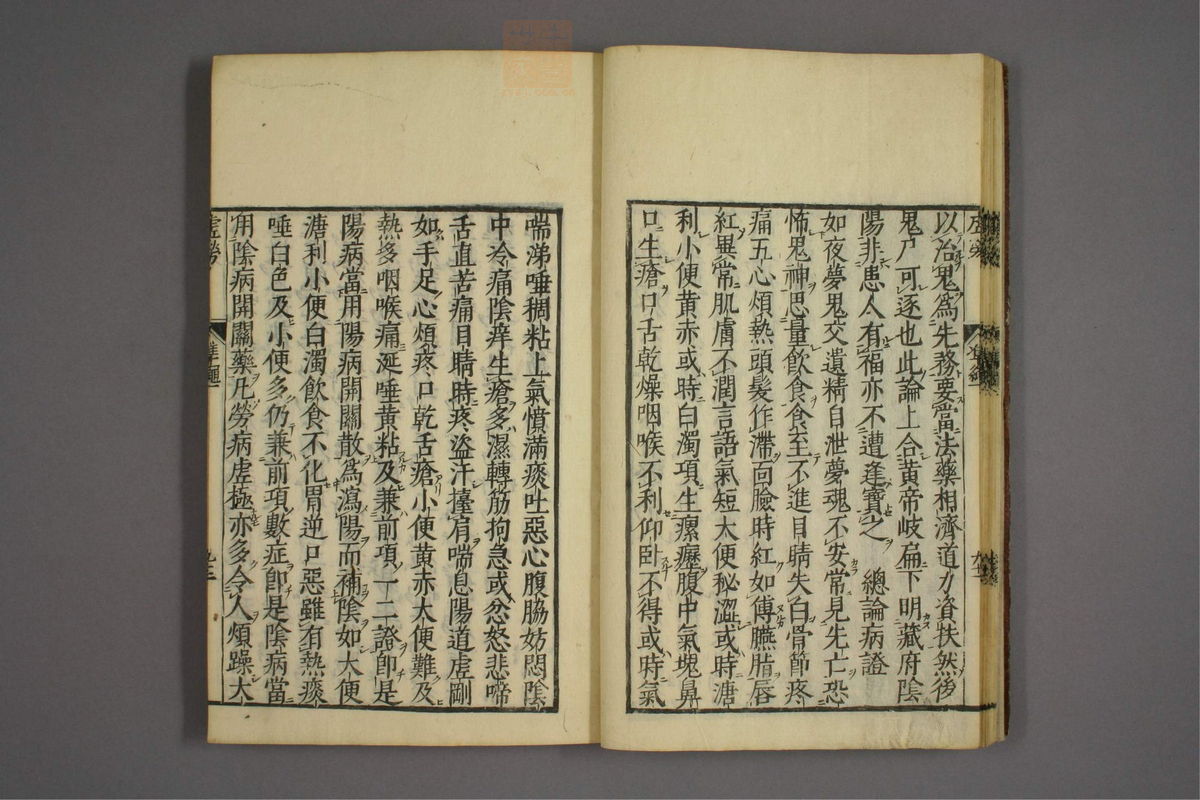 以治鬼爲先務要當法藥相濟道力資扶然後
鬼尸可逐也此論上合黄帝岐扁下明藏府陰
陽非患人有福亦不遭逢寶之　總論病證
如夜夢鬼交遺精自泄夢魂不安常見先亡恐
怖鬼神思量飲食食至不進目睛失白骨節疼
痛五心煩熱頭髮作滯面臉時紅如傅臙脂唇
紅異常肌膚不潤言語氣短大便秘澀或時溏
利小便黄赤或時白濁項生瘰癧腹中氣塊鼻
口生瘡口舌乾燥咽喉不利仰卧不得或時氣
喘涕唾稠粘上氣憤滿痰吐惡心腹脇妨悶陰
中冷痛陰痒生瘡多濕轉筋拘急或忿怒悲啼
舌直苦痛目睛時疼盜汗擡肩喘息陽道虛剛
如手足心煩疼口乾舌瘡小便黄赤大便難及
熱多咽喉痛涎唾黄粘及兼前項一二證卽是
陽病當用陽病開關散爲瀉陽而補陰如大便
溏利小便白濁飲食不化胃逆口惡雖有熱痰
唾白色及小便多仍兼前項數症卽是陰病當
用陰病開關藥凡勞病虛極亦多令人煩躁大
虛勞
準繩
九三